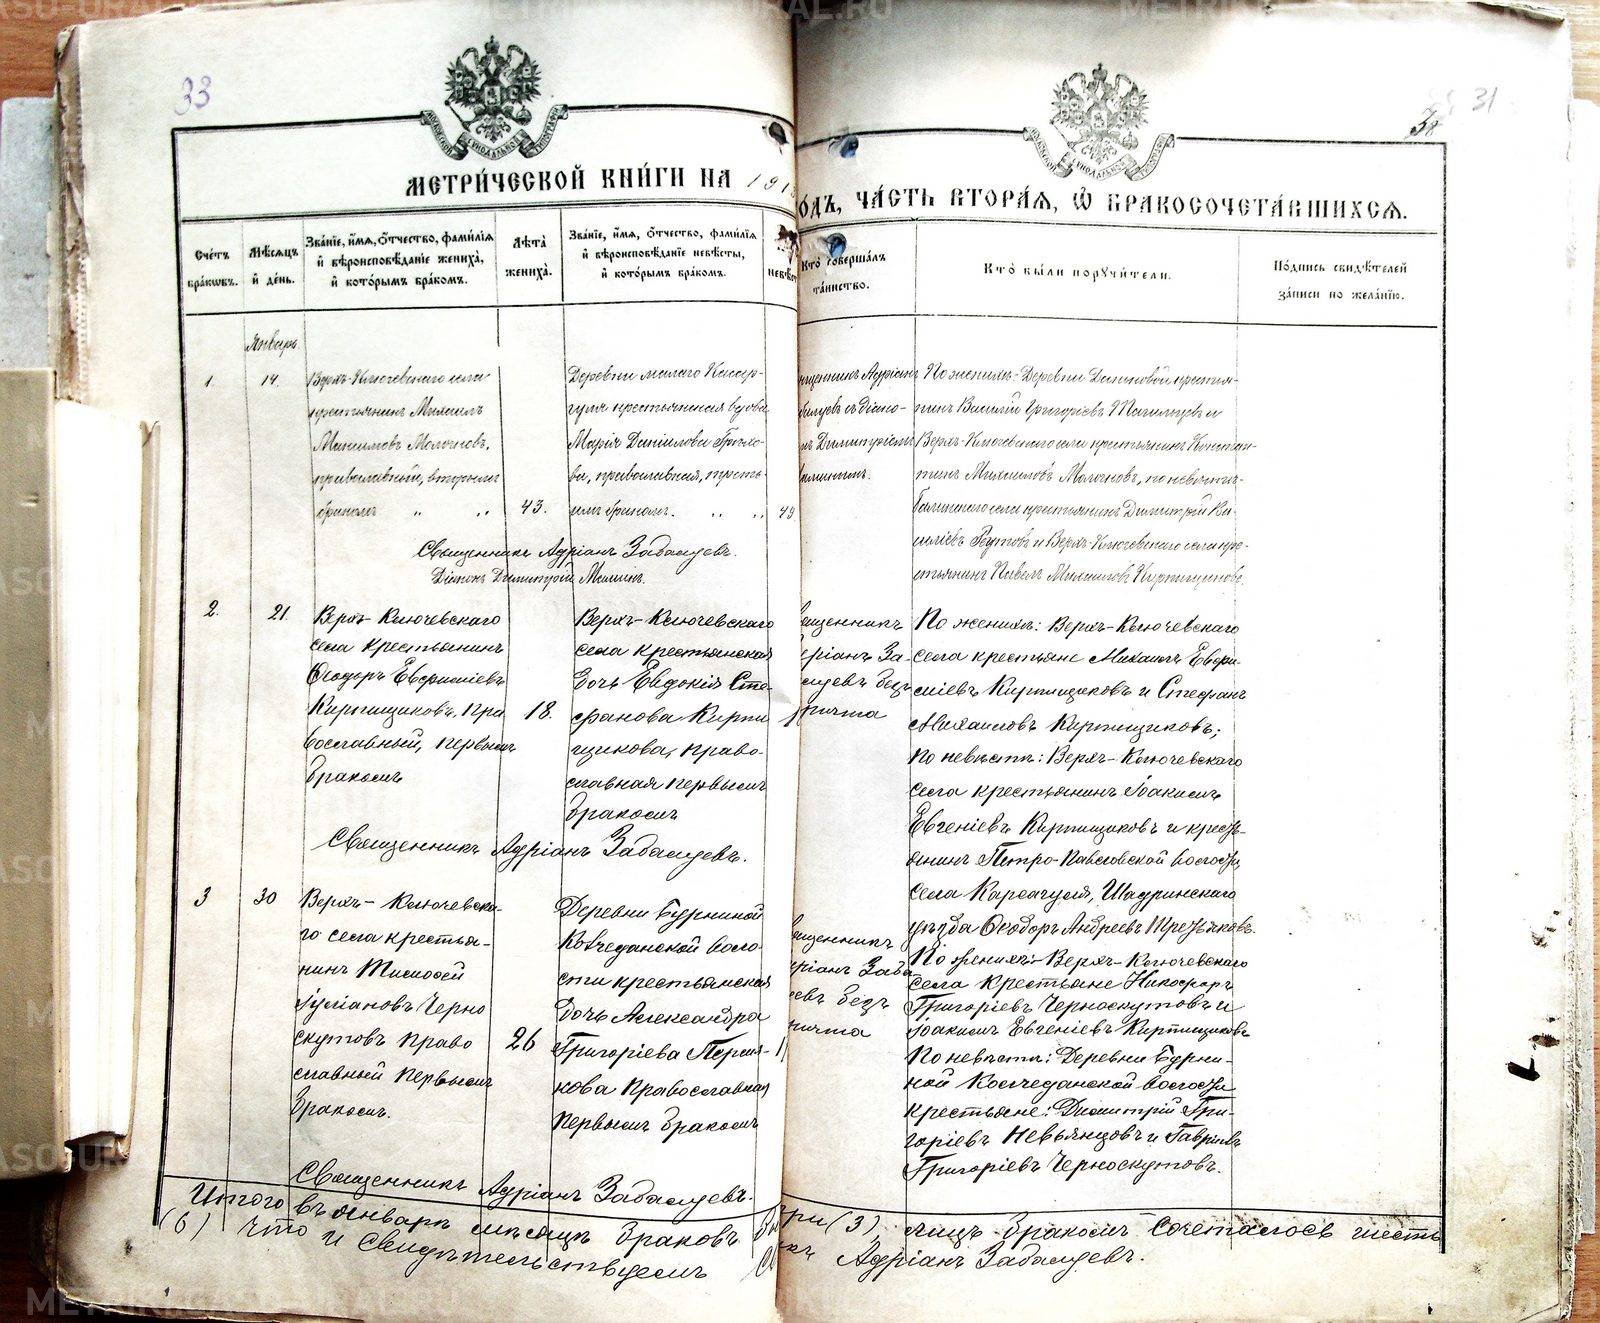 33
31
МЕТРИ́ЧЕСКОЙ КНИ́ГИ НА 191
ОДЪ, ЧА́СТЬ ВТОРА́Я, Ѡ҆ БРАКОСОЧЕТА́ВШИХСѦ.
Сче́тъ бра́кѡвъ.
Мѣ́сѧцъ и҆ де́нь.
Зва́нїе, и҆́мѧ, ѻ҆́тчество, фами́лїѧ
и҆ вѣроисповѣ́данїе жениха̀,
и҆ кото́рымъ бра́комъ.
Лѣ́та̀ жениха̀.
Зва́нїе, и҆́мѧ, ѻ҆́тчество, фами́лїѧ
и҆ вѣроисповѣ́данїе невѣ́сты,
и҆ кото́рымъ бра́комъ.
невѣст
Кто̀ соверша́лъ
та́инство.
Кто̀ бы́ли поручи́тели.
По́дпись свидѣ́телей
за́писи по жела́нїю.
Январь
1.
14.
Верхъ-Ключевскаго села
крестьянинъ Михаилъ
Максимовъ Молочковъ,
православный, вторымъ
бракомъ
43.
Деревни малаго Кассар-
гуля крестьянская вдова
Марія Даніилова
ва, православная, треть-
имъ бракомъ.
49
Священникъ Адріанъ Забалуевъ.
Діаконъ Димитрій
щенникъ Адріанъ
балуевъ съ діако-
мъ Димитріемъ
По женихѣ: Деревни крестья-
нинъ Василій Григоріевъ и
Верхъ-Ключевскаго села крестьянинъ Констан-
тинъ Михаиловъ Молочковъ, по невѣстѣ:
села крестьянинъ Димитрій Ва-
силіевъ Реутовъ и Верхъ-Ключевскаго села кре-
стьянинъ Павелъ Михаиловъ Кирпищиковъ.
2.
21.
Верхъ-Ключевскаго
села крестьянинъ
Ѳеодоръ Евфиміевъ
Кирпищиковъ, пра
вославный, первымъ
бракомъ
18.
Верхъ-Ключевскаго
села крестьянская
дочь Евдокія Сте-
фанова Кирпи
щикова, право-
славная первымъ
бракомъ
Священникъ Адріанъ Забалуевъ.
ященникъ
дріанъ За-
алуевъ безъ
причта
По женихѣ: Верхъ-Ключевскаго
села крестьяне Михаилъ Евфи-
міевъ Кирпищиковъ и Стефанъ
Михаиловъ Кирпищиковъ;
По невѣстѣ: Верхъ-Ключевскаго
села крестьянинъ Іоакимъ
Евгеніевъ Кирпищиковъ и кресть-
янинъ Петро-Павловской волости,
села Шадринскаго
уѣзда Ѳеодоръ Андреевъ Третьяковъ.
3
30
Верхъ-Ключевска-
го села крестья-
нинъ Тимофей
Іуліановъ Черно
скутовъ право
славный первымъ
бракомъ.
26
Деревни Бурниной
Колчеданской воло-
сти крестьянская
дочь Александра
Григоріева Перши-
кова православная
первымъ бракомъ
Священникъ Адріанъ Забалуевъ.
ященникъ
дріанъ Заба
евъ безъ
причта
По женихѣ: Верхъ-Ключевскаго
села крестьяне Никифоръ
Григоріевъ Черноскутовъ и
Іоакимъ Евгеніевъ Кирпищиковъ
По невѣстѣ: Деревни Бурни-
ной Колчеданской волости
крестьяне: Димитрій Гри-
горіевъ Невьянцовъ и Гавріилъ
Григоріевъ Черноскутовъ.
Итого въ январѣ мѣсяцѣ браковъ три (3), лицъ бракомъ сочеталось шесть
(6) что и свидѣтельствуемъ Адріанъ Забалуевъ.